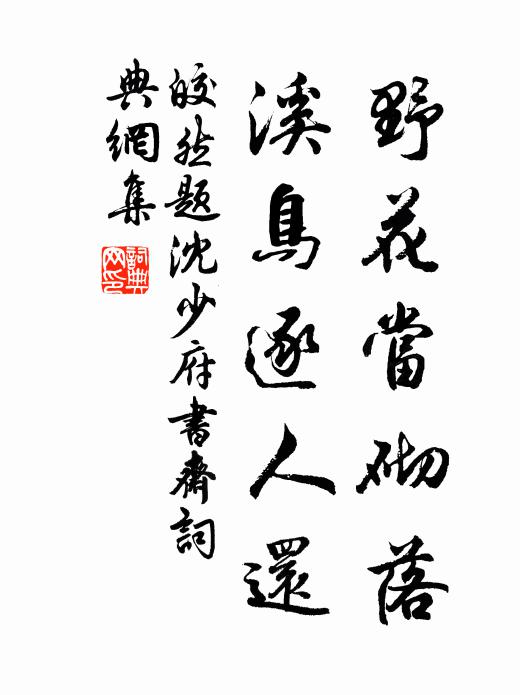 野花當砌落
溪鳥逐人還
皎然題沈少府書齋詞
典網集
詞典網印